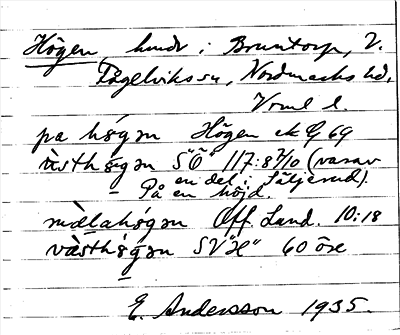 Högen, hmdr i Bruntorp, V.
Fågelviks sn, Nordmarks hd,
Vrml l.
pa hǿgən Högen ek G 69
ùsthǿgən S"Ö" 117:87/10 (varav
en del i Säljerud).
På en höjd.
mæ̀lahøgən Off. Lund. 10:18
væ̀sthǿgən SV"H" 60 öre
E. Andersson 1935.